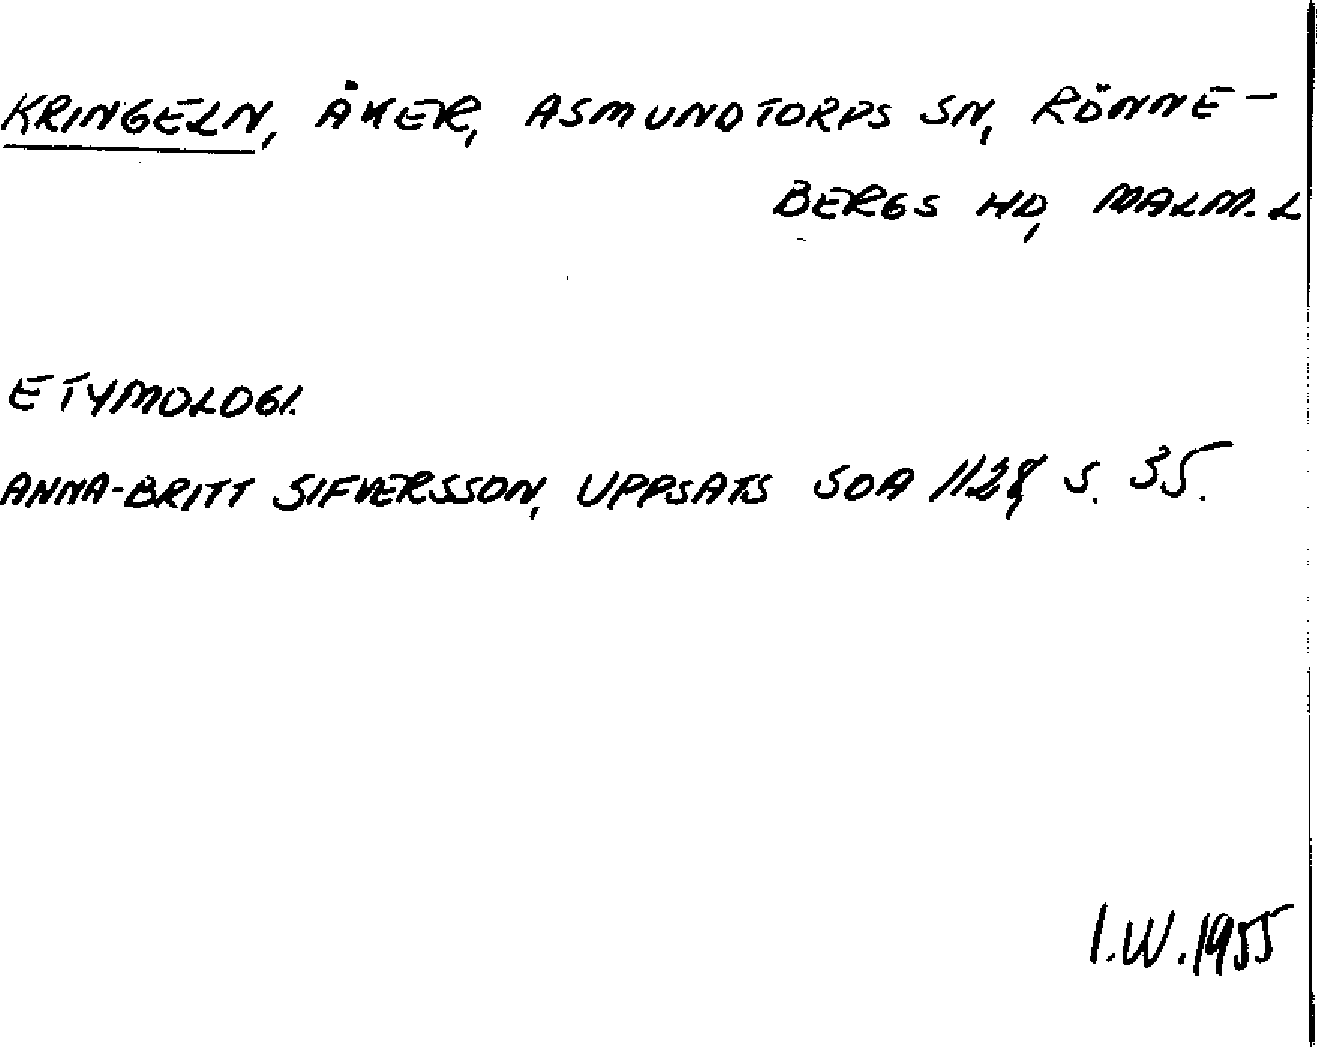 KRINGELN, ÅKER, ASMUNDTORPS SN, RÖNNE-
BERGS HD, MALM. L
ETYMOLOGI.
ANNA-BRITT SIFVERSSON, UPPSATS SOA 1128, S. 35.
I.W. 1955